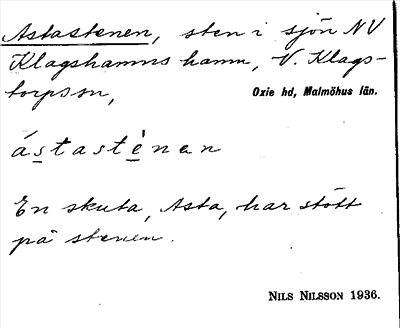 Astastenen, sten i sjön NV
Klagshamns hamn, V. Klags-
torps sn,
Oxie hd, Malmöhus län.
ástastènen
En skuta, Asta, har stött
på stenen.
NILS NILSSON 1936.